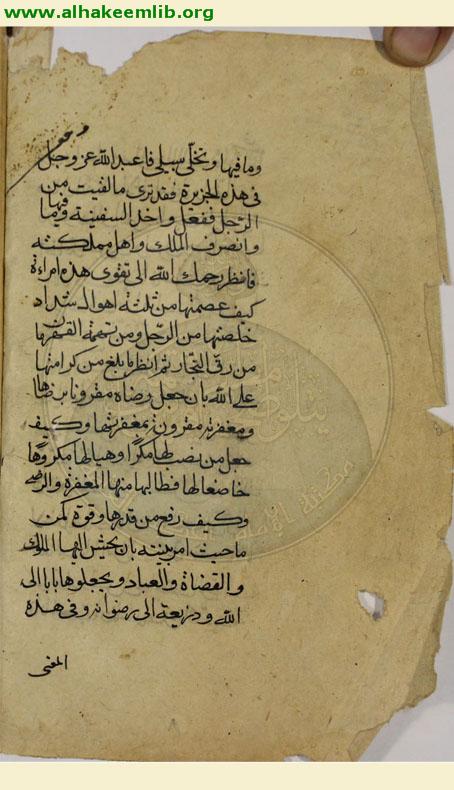 www.alhakeemlib.org
وما فيها وتخلّي سبيلي فاعبد الله عز وجل
في هذه الجزيرة فقد ترى ما لقيت من
الرّجل ففعل واخذ السفينة وما فيها
وانصرف الملك واهل مملكته
فانظر رحمك الله الى تقوى هذه امراءة
كيف عصمتها من ثلثة اهوال شداد
خلصتها من الرّجل ومن تهمة القهرمان
من رقّ التجار ثم انظر ما بلغ من كرامتها
على الله بان جعل رضاه مقرونا برضاها
ومغفرته مقرونة بمغفرتها وكيف
جعل من نصب لها مكرًا وهيا لها مكروها
خاضعا لها فطالبها منها المغفرة والرضى
وكيف رفع من قدرها وقوة
ما حيث امر بنيته بان يحش اليها الملوك
والقضاة والعباد ويجعلوها بابا الى
الله وذريعة الى رضوانه وفي هذه
المعنى